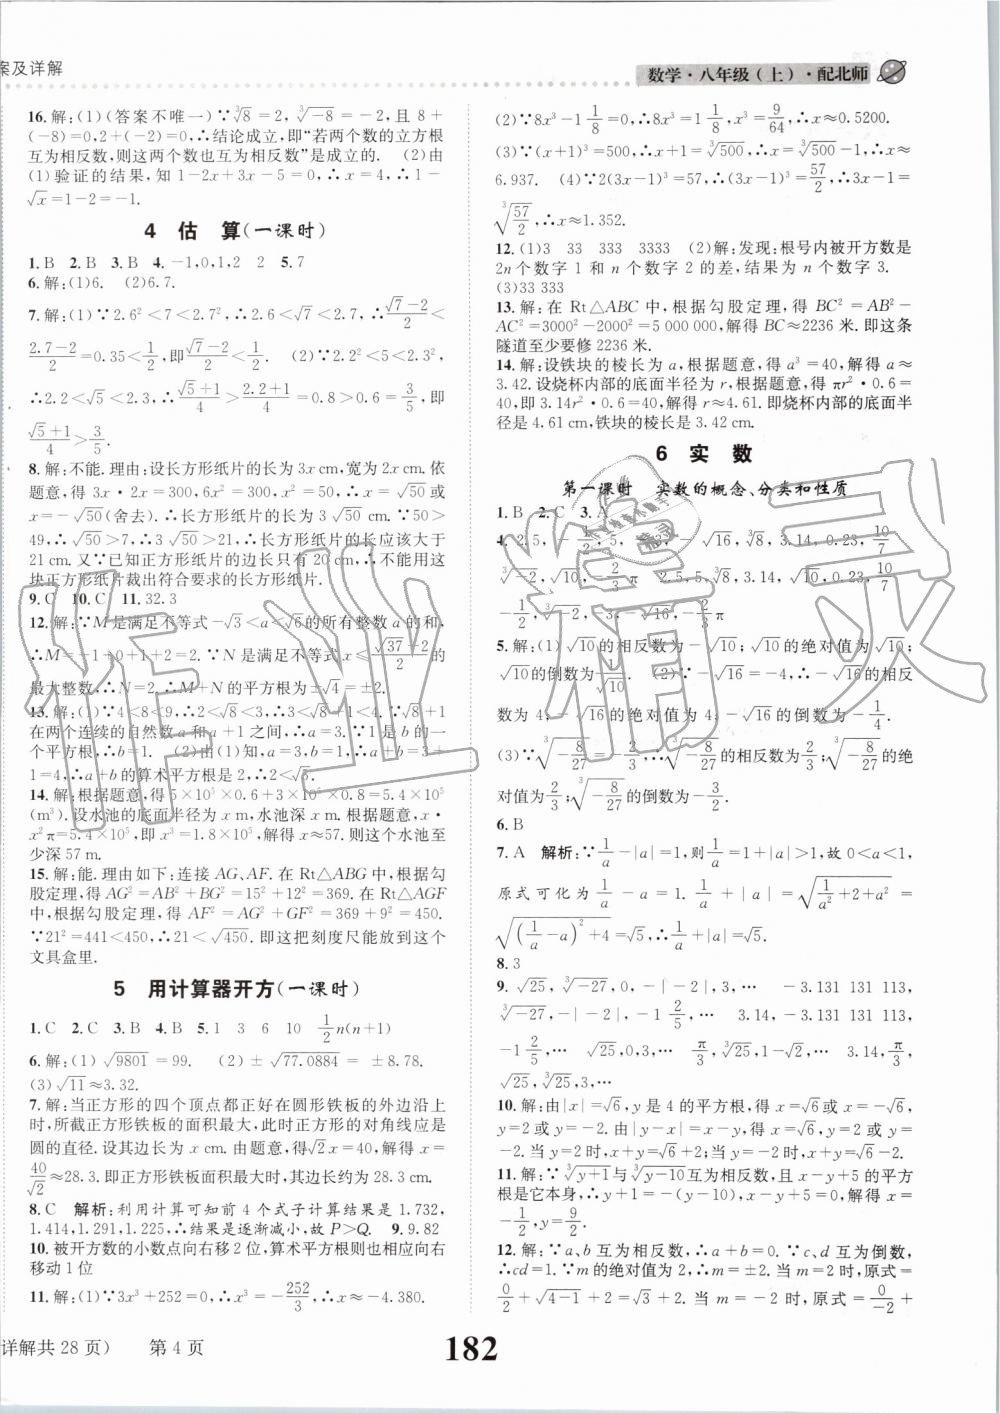 案及详解
数学·八年级(上)·配北师
16.解:(1)(答案不唯一)∵∛8=2,∛-8=-2,且 8+
(-8)=0,2+(-2)=0,∴结论成立,即“若两个数的立方根
互为相反数,则这两个数也互为相反数”是成立的. (2)由
(1)验证的结果,知 1-2x+3x-5=0,∴x=4,∴1-
√x=1-2=-1.
4 估 算(一课时)
1.B 2.B 3.B 4.-1,0,1,2 2 5.7
6.解:(1)6. (2)6.7.
7.解:(1)∵2.6²<7<2.7²,∴2.6<√7<2.7,∴(√7-2)/2<
(2.7-2)/2=0.35<1/2,即(√7-2)/2<1/2. (2)∵2.2²<5<2.3²,
∴2.2<√5<2.3,∴(√5+1)/4>(2.2+1)/4=0.8>0.6=3/5,即
(√5+1)/4>3/5.
8.解:不能.理由:设长方形纸片的长为3x cm,宽为2x cm.依
题意,得3x·2x=300,6x²=300,x²=50,∴x=√50或x
=-√50(舍去).∴长方形纸片的长为3√50 cm.∵50>
49,∴√50>7,∴3√50>21,∴长方形纸片的长应该大于
21 cm.又∵已知正方形纸片的边长只有20 cm,∴不能用这
块正方形纸片裁出符合要求的长方形纸片.
9.C 10.C 11.32.3
12.解:∵M是满足不等式-√3<a<√6的所有整数a的和,
∴M=-1+0+1+2=2.∵N是满足不等式x≤(√37-2)/2的
最大整数,∴N=2.∴M+N的平方根为±√4=±2.
13.解:(1)∵4<8<9,∴2<√8<3,∴3<√8+1<4.∵√8+1
在两个连续的自然数a和a+1之间,∴a=3.∵1是b的一
个平方根,∴b=1. (2)由(1)知,a=3,b=1,∴a+b=3+
1=4,∴a+b的算术平方根是2.
14.解:根据题意,得5×10⁵×0.6+3×10⁵×0.8=5.4×10⁵
(m³).设水池的底面半径为x m,水池深2x m.根据题意,x·
x²π=5.4×10⁵,即x³=1.8×10⁵,解得x≈57.则这个水池至
少深57 m.
15.解:能.理由如下:连接AG、AF.在Rt△ABG中,根据勾
股定理,得AG²=AB²+BG²=15²+12²=369.在Rt△AGF
中,根据勾股定理,得AF²=AG²+GF²=369+9²=450.
∵21²=441<450,∴21<√450.即这把刻度尺能放到这个
文具盒里.
5 用计算器开方(一课时)
1.C 2.C 3.B 4.B 5.1 3 6 10 1/2n(n+1)
6.解:(1)√9801=99. (2)±√77.0884=±8.78.
(3)√11≈3.32.
7.解:当正方形的四个顶点都正好在圆形铁板的外边沿上
时,所截正方形铁板的面积最大,此时正方形的对角线应是
圆的直径.设正方形的边长为x cm.由题意,得√2x=40,x=
40/√2≈28.3.即正方形铁板面积最大时,边长约为28.3 cm.
8.C 解析:利用计算可知前4个式子计算结果为1.732,
1.414,1.291,1.225,∴结果是逐渐减小,故P>Q. 9.9.82
10.被开方数的小数点向右移2位,算术平方根则也相应向右
移动1位
11.解:(1)∵3x³+252=0,∴x³=-252/3,∴x≈-4.380.
(2)∵8x³-1 1/8=0,∴8x³=1 1/8,x³=9/64,∴x≈0.5200.
(3)∵(x+1)³=500,∴x+1=∛500,∴x=∛500-1,∴x≈
6.937. (4)∵2(3x-1)³=57,∴(3x-1)³=57/2,∴3x-1=
∛57/2,∴x≈1.352.
12.(1)3 33 333 3333 (2)解:发现:根号内被开方数是
2n个数字1和n个数字2的差,结果为n个数字3.
(3)33 333
13.解:在Rt△ABC中,根据勾股定理,得BC²=AB²-
AC²=3000²-2000²=5 000 000,解得BC≈2236米.即这条
隧道至少要修2236米.
14.解:设铁块的棱长为a,根据题意,得a³=40,解得a≈
3.42.设烧杯内部的底面半径为r,根据题意,得πr²·0.6=
40,即3.14r²×0.6=40,解得r≈4.61.即烧杯内部的底面半
径是4.61 cm,铁块的棱长是3.42 cm.
6 实 数
第一课时 实数的概念、分类和性质
1.B 2.C 3.A
4.2.5,-1/2,5,-2,-√16,∛8,3.14,0.23,10/7
∛-2,√10,-2/3π 2.5,5,∛8,3.14,√10,0.23,10/7
-1/2,-√16,∛-2,-2/3π
5.解:(1)√10的相反数为-√10;√10的绝对值为√10;
√10的倒数为1/√10. (2)∵-√16=-4,∴-√16的相反
数为4;-√16的绝对值为4;-√16的倒数为-1/4.
(3)∵∛-8/27=-2/3,∴∛-8/27的相反数为2/3;∛-8/27的绝
对值为2/3;∛-8/27的倒数为-3/2.
6.B
7.A 解析:∵1/a-|a|=1,则1/a=1+|a|>1,故0<a<1,
原式可化为1/a-a=1.1/a+|a|=√(1/a²+2+a²)=
√((1/a-a)²+4)=√5,∴1/a+|a|=√5.
8.3
9.√25,∛-27,0,-|-2|,3,… -3.131 131 113,
∛-27,-|-2|,-1 2/5,… 3.14,-3.131 131 113,
-1 2/5,… √25,0,3,… π/3,1-√2,… 3.14,π/3,
√25,∛25,3,…
10.解:由|x|=√6,y是4的平方根,得x=√6或x=-√6,
y=2或y=-2.由|y-x|=x-y,得x>y,∴x=√6,y=2或
-2.当y=2时,x+y=√6+2;当y=-2时,x+y=√6-2.
11.解:∵∛y+1与∛y-10互为相反数,且x-y+5的平方
根是它本身,∴y+1=-(y-10),x-y+5=0,解得x=
-1/2,y=9/2.
12.解:∵a、b互为相反数,∴a+b=0.∵c、d互为倒数,
∴cd=1.∵m的绝对值为2,∴m=±2.当m=2时,原式=
0/2+√4-1+2=√3+2.当m=-2时,原式=0/-2+
详解共28页) 第4页
182
作业精灵